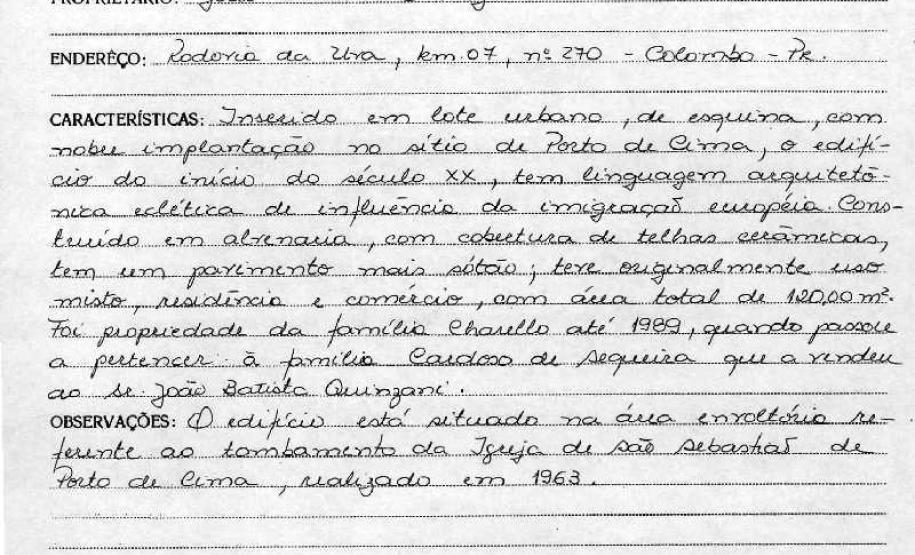 PROPRIETÁRIO:
ENDERÊÇO: Rodovia da Uva, km.07, nº 270 - Colombo - Pr.
CARACTERÍSTICAS: Inserido em lote urbano, de esquina, com
nobre implantação no sítio de Porto de Cima, o edifí-
cio do início do século XX, tem linguagem arquitetô-
nica eclética de influência da imigração européia. Cons-
truído em alvenaria, com cobertura de telhas cerâmicas,
tem um pavimento mais sótão; teve originalmente uso
misto, residência e comércio, com área total de 120,00 m².
Foi propriedade da família Charello até 1989, quando passou
a pertencer à família Cardoso de Sequeira que a vendeu
ao sr. João Batista Quinzani.
OBSERVAÇÕES: O edifício está situado na área envoltória re-
ferente ao tombamento da Igreja de São Sebastião de
Porto de Cima, realizado em 1963.